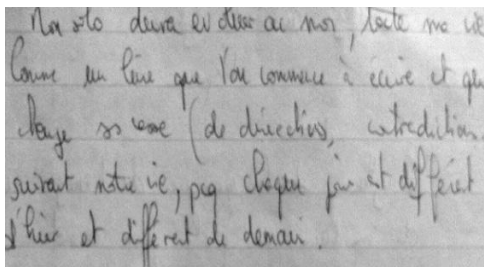 devra evoluer au mor, toute ma vie
Comme un livre que l'on commence à écrire et qui
change (de direction, contradiction
suivant notre vie, pcq chaque jour est différent
d'hier et différent de demain.